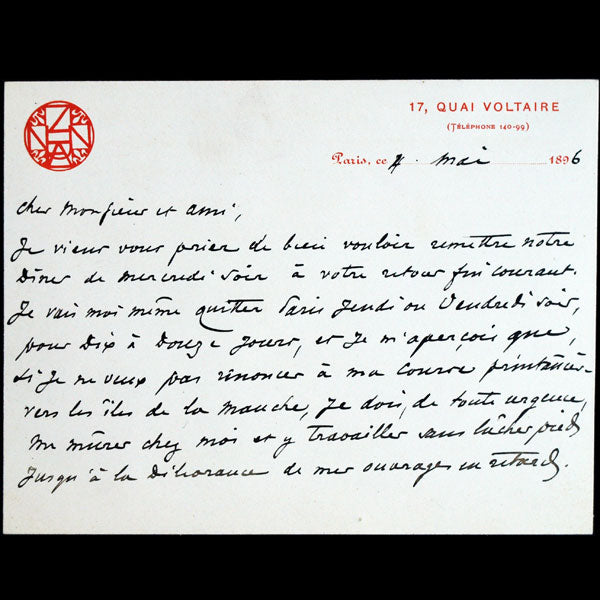 17, QUAI VOLTAIRE
(TÉLÉPHONE 140-99)
Paris, ce 4. mai 1896
cher Monsieur et ami,
Je viens vous prier de bien vouloir remettre notre
Dîner de mercredi soir à votre retour fin courant.
Je vais moi même quitter Paris Jeudi ou Vendredi soir,
pour Dix à Douze Jours, et Je m'aperçois que,
si Je ne veux pas renoncer à ma course printanière
vers les îles de la Manche, Je dois, de toute urgence,
me murer chez moi et y travailler sans lâcher pied
Jusqu'à la Délivrance de mes ouvrages en retard.